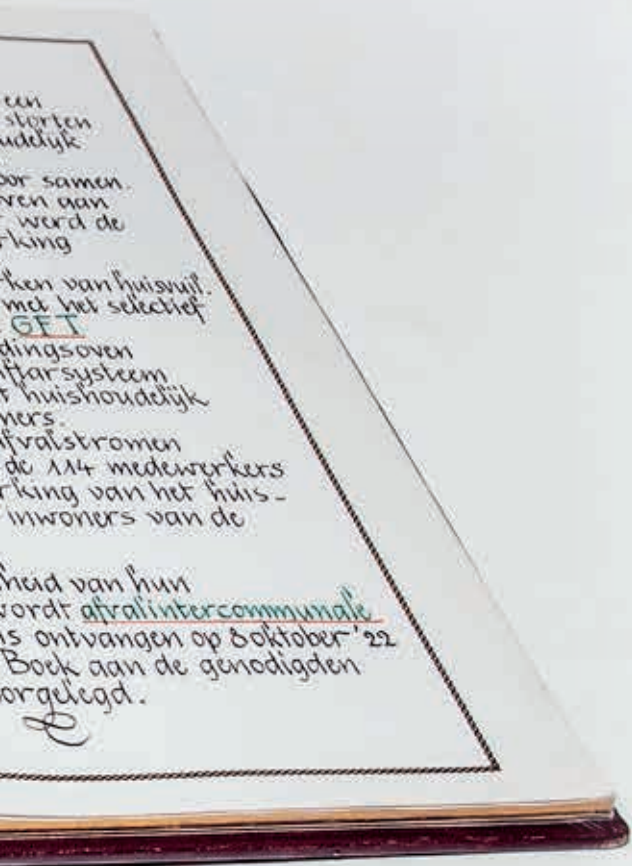 een
storten
udelijk
oor samen.
ven aan
werd de
rking
ken van huisvuil.
met het selectief
GFT
dingsoven
iftarsysteem
t huishoudelijk
ners.
afvalstromen
de 114 medewerkers
rking van het huis-
inwoners van de
heid van hun
wordt afvalintercommunale
is ontvangen op 8 oktober '22
Boek aan de genodigden
orgelegd.